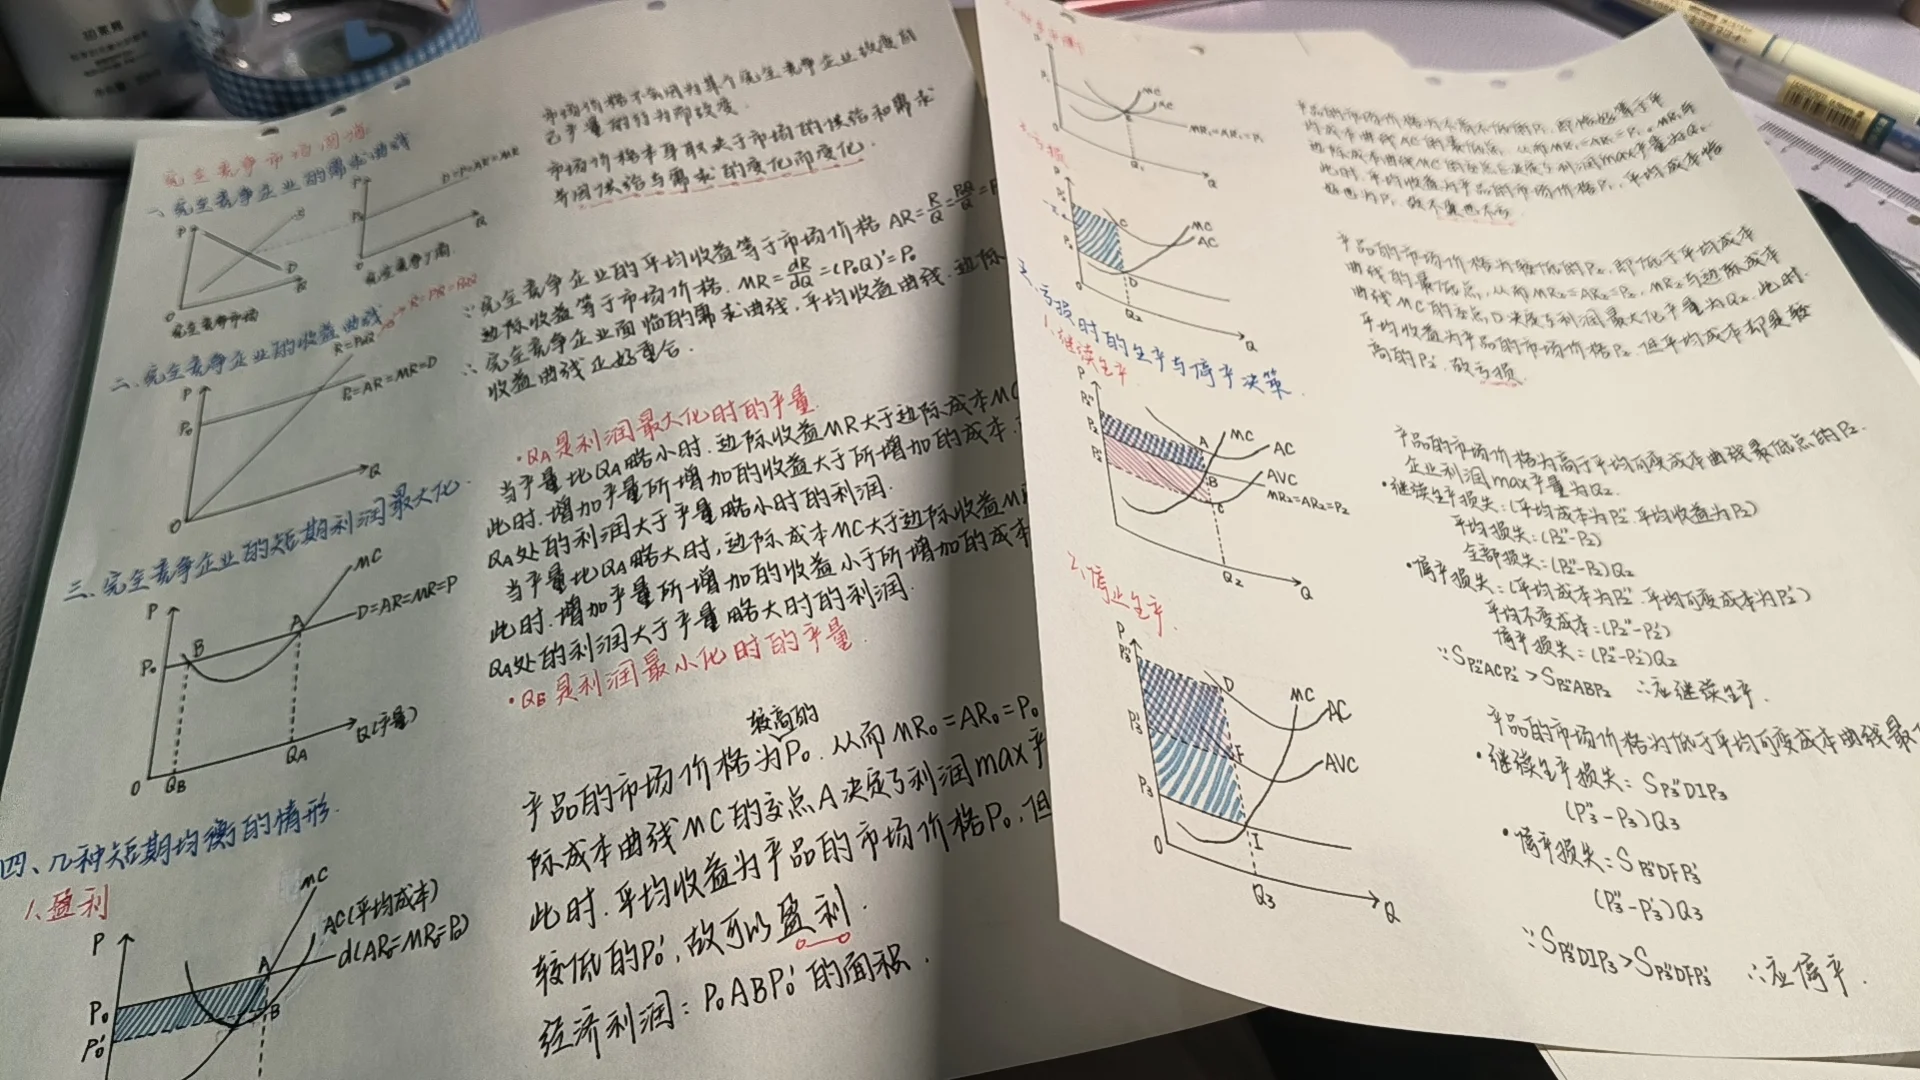 完全竞争市场
一、完全竞争企业的需求曲线
P
S
D
Q
完全竞争市场
P
P₀
D=P=AR=MR
Q
市场价格不会因为某个完全竞争企业改变自
己产量的行为而改变.
市场价格本身取决于市场的供给和需求
并因供给与需求的变化而变化.
∵完全竞争企业的平均收益等于市场价格 AR=R/Q=
边际收益等于市场价格. MR=dR/dQ=(P₀Q)'=P₀
∴完全竞争企业面临的需求曲线,平均收益曲线.边际
收益曲线正好重合.
二、完全竞争企业的收益曲线
R=P₀Q
P₀=AR=MR=D
P
P₀
O
Q
·QA是利润最大化时的产量.
当产量比QA略小时.边际收益MR大于边际成本MC
此时.增加产量所增加的收益大于所增加的成本.
QA处的利润大于产量略小时的利润.
当产量比QA略大时,边际成本MC大于边际收益MR
此时.增加产量所增加的收益小于所增加的成本
QA处的利润大于产量略大时的利润.
·QB是利润最小化时的产量.
三、完全竞争企业的短期利润最大化.
P
MC
D=AR=MR=P
A
B
P₀
O
QB
QA
Q(产量)
四、几种短期均衡的情形.
1、盈利
P
MC
AC(平均成本)
d(AR₀=MR₀=P₀)
A
B
P₀
P₀'
较高的
产品的市场价格为P₀.从而MR₀=AR₀=P₀
际成本曲线MC的交点A决定了利润max产
此时.平均收益为产品的市场价格P₀.但
较低的P₀',故可以盈利.
经济利润:P₀ABP₀'的面积.
MC
AC
MR₁=AR₁=P₁
P₁
O
Q₁
Q
产品的市场价格为不高不低的P₁,即恰好等于平
均成本曲线AC的最低点,从而MR₁=AR₁=P₁,MR₁与
边际成本曲线MC的交点E决定了利润max产量为Q₁.
此时,平均收益为产品的市场价格P₁,平均成本恰
好也为P₁,故不盈也不亏.
亏损
P
C
MC
AC
P₂
D
O
Q₂
Q
产品的市场价格为较低的P₂,即低于平均成本
曲线的最低点,从而MR₂=AR₂=P₂,MR₂与边际成本
曲线MC的交点D决定了利润最大化产量为Q₂.此时.
平均收益为产品的市场价格P₂.但平均成本却是较
高的P₂',故亏损.
亏损时的生产与停产决策.
1、继续生产
P
P₂''
P₂
P₂'
A
B
C
MC
AC
AVC
MR₂=AR₂=P₂
Q₂
Q
产品的市场价格为高于平均可变成本曲线最低点的P₂.
企业利润max产量为Q₂.
·继续生产损失:(平均成本为P₂''.平均收益为P₂)
平均损失:(P₂''-P₂)
全部损失:(P₂''-P₂)Q₂
·停产损失:(平均成本为P₂''.平均可变成本为P₂')
平均不变成本:(P₂''-P₂')
停产损失:(P₂''-P₂')Q₂
∵SP₂''ACP₂'>SP₂''ABP₂ ∴应继续生产.
2、停业生产.
P
P₃''
P₃'
P₃
O
D
F
I
MC
AC
AVC
Q₃
Q
产品的市场价格为低于平均可变成本曲线最
·继续生产损失:SP₃''DIP₃
(P₃''-P₃)Q₃
·停产损失:SP₃''DFP₃'
(P₃''-P₃')Q₃
∵SP₃''DIP₃>SP₃''DFP₃' ∴应停产.